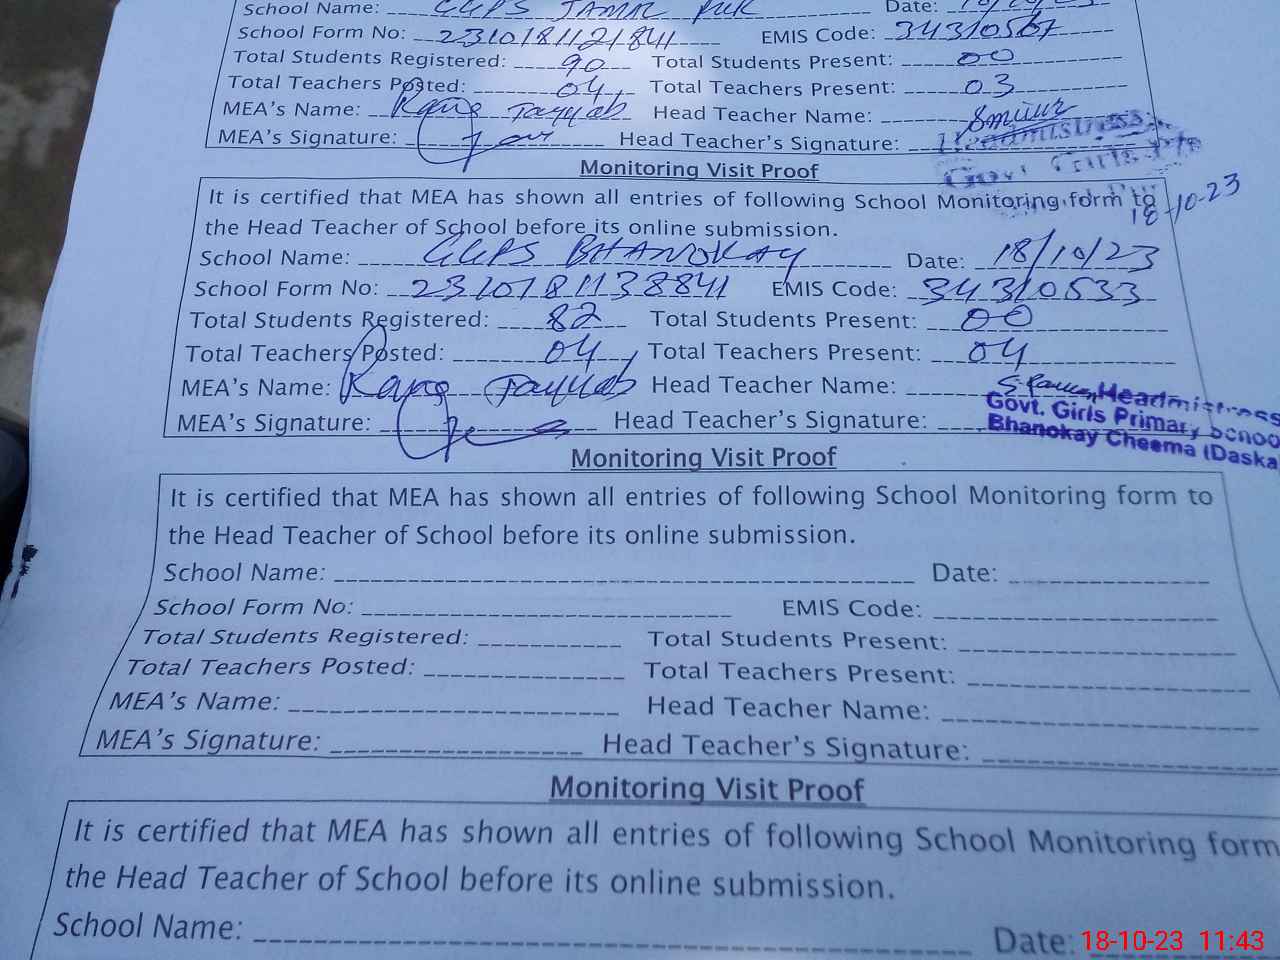 School Name: GGPS JAMK PUR Date:
School Form No: 2310181121841 EMIS Code: 34310567
Total Students Registered: 90 Total Students Present: 00
Total Teachers Posted: 04 Total Teachers Present: 03
MEA's Name: Rana Tayyab Head Teacher Name:
MEA's Signature: Head Teacher's Signature: Headmistress
Govt Girls P/S
Monitoring Visit Proof
18-10-23
It is certified that MEA has shown all entries of following School Monitoring form to
the Head Teacher of School before its online submission.
School Name: GGPS BHANOKAY Date: 18/10/23
School Form No: 2310181138841 EMIS Code: 34310533
Total Students Registered: 82 Total Students Present: 00
Total Teachers Posted: 04 Total Teachers Present: 04
MEA's Name: Rana Tayyab Head Teacher Name:
MEA's Signature: Head Teacher's Signature:
Headmistress
Govt. Girls Primary School
Bhanokay Cheema (Daska
Monitoring Visit Proof
It is certified that MEA has shown all entries of following School Monitoring form to
the Head Teacher of School before its online submission.
School Name: Date:
School Form No: EMIS Code:
Total Students Registered: Total Students Present:
Total Teachers Posted: Total Teachers Present:
MEA's Name: Head Teacher Name:
MEA's Signature: Head Teacher's Signature:
Monitoring Visit Proof
It is certified that MEA has shown all entries of following School Monitoring form
the Head Teacher of School before its online submission.
School Name: Date:
18-10-23 11:43